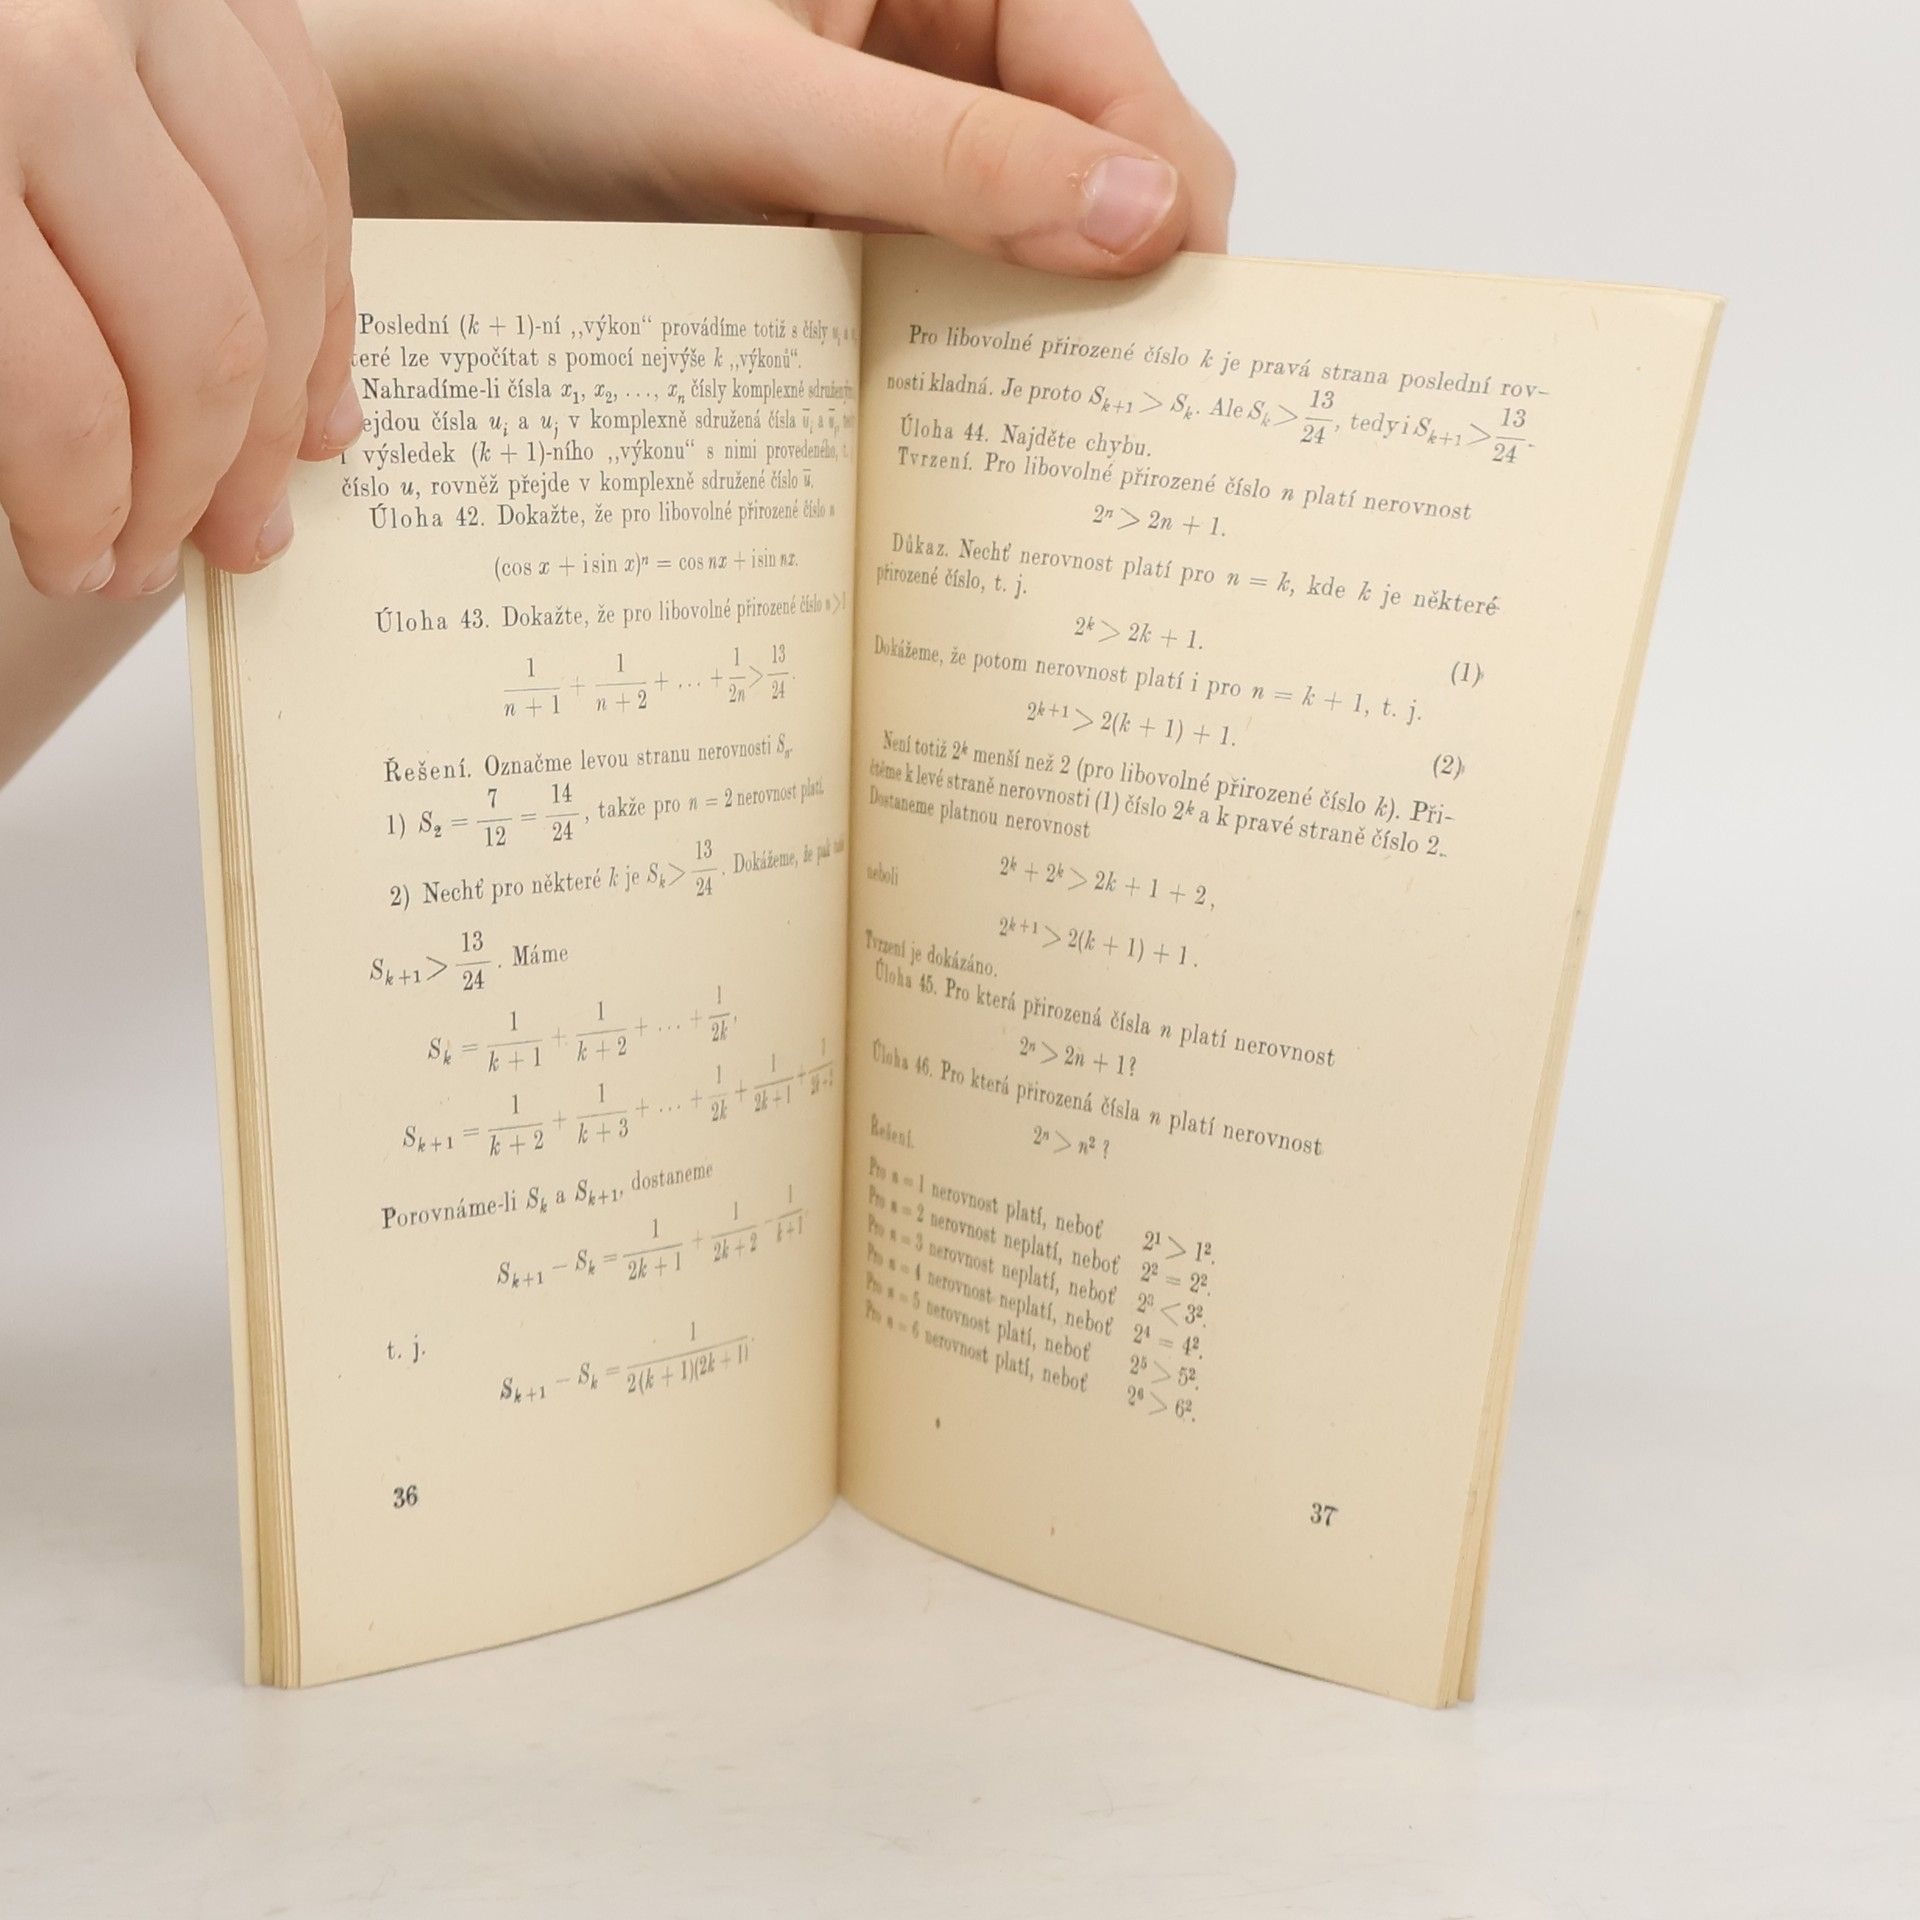 Poslední (k + 1)-ní „výkon“ provádíme totiž s čísly
teré lze vypočítat s pomocí nejvýše k „výkonů“.
Nahradíme-li čísla x₁, x₂, ..., xₙ čísly komplexně sdruženými
ejdou čísla uᵢ a uⱼ v komplexně sdružená čísla ūᵢ a
výsledek (k + 1)-ního „výkonu“ s nimi provedeného, t.
číslo u, rovněž přejde v komplexně sdružené číslo ū.
Úloha 42. Dokažte, že pro libovolné přirozené číslo n
(cos x + i sin x)ⁿ = cos nx + i sin nx.
Úloha 43. Dokažte, že pro libovolné přirozené číslo n > 1
1/(n + 1) + 1/(n + 2) + ... + 1/2n > 13/24.
Řešení. Označme levou stranu nerovnosti Sₙ.
1) S₂ = 7/12 = 14/24, takže pro n = 2 nerovnost platí.
2) Nechť pro některé k je Sₖ > 13/24. Dokážeme, že pak také
Sₖ₊₁ > 13/24. Máme
Sₖ = 1/(k + 1) + 1/(k + 2) + ... + 1/2k,
Sₖ₊₁ = 1/(k + 2) + 1/(k + 3) + ... + 1/2k + 1/(2k + 1) + 1/(2k + 2)
Porovnáme-li Sₖ a Sₖ₊₁, dostaneme
Sₖ₊₁ − Sₖ = 1/(2k + 1) + 1/(2k + 2) − 1/(k + 1)
t. j.
Sₖ₊₁ − Sₖ = 1/(2(k + 1)(2k + 1)).
36
Pro libovolné přirozené číslo k je pravá strana poslední rov-
nosti kladná. Je proto Sₖ₊₁ > Sₖ. Ale Sₖ > 13/24, tedy i Sₖ₊₁ > 13/24.
Úloha 44. Najděte chybu.
Tvrzení. Pro libovolné přirozené číslo n platí nerovnost
2ⁿ > 2n + 1.
Důkaz. Nechť nerovnost platí pro n = k, kde k je některé
přirozené číslo, t. j.
2ᵏ > 2k + 1. (1)
Dokážeme, že potom nerovnost platí i pro n = k + 1, t. j.
2ᵏ⁺¹ > 2(k + 1) + 1. (2)
Není totiž 2ᵏ menší než 2 (pro libovolné přirozené číslo k). Při-
čtěme k levé straně nerovnosti (1) číslo 2ᵏ a k pravé straně číslo 2.
Dostaneme platnou nerovnost
2ᵏ + 2ᵏ > 2k + 1 + 2,
neboli
2ᵏ⁺¹ > 2(k + 1) + 1.
Tvrzení je dokázáno.
Úloha 45. Pro která přirozená čísla n platí nerovnost
2ⁿ > 2n + 1?
Úloha 46. Pro která přirozená čísla n platí nerovnost
2ⁿ > n² ?
Řešení.
Pro n = 1 nerovnost platí, neboť 2¹ > 1².
Pro n = 2 nerovnost neplatí, neboť 2² = 2².
Pro n = 3 nerovnost neplatí, neboť 2³ < 3².
Pro n = 4 nerovnost neplatí, neboť 2⁴ = 4².
Pro n = 5 nerovnost platí, neboť 2⁵ > 5².
Pro n = 6 nerovnost platí, neboť 2⁶ > 6².
37